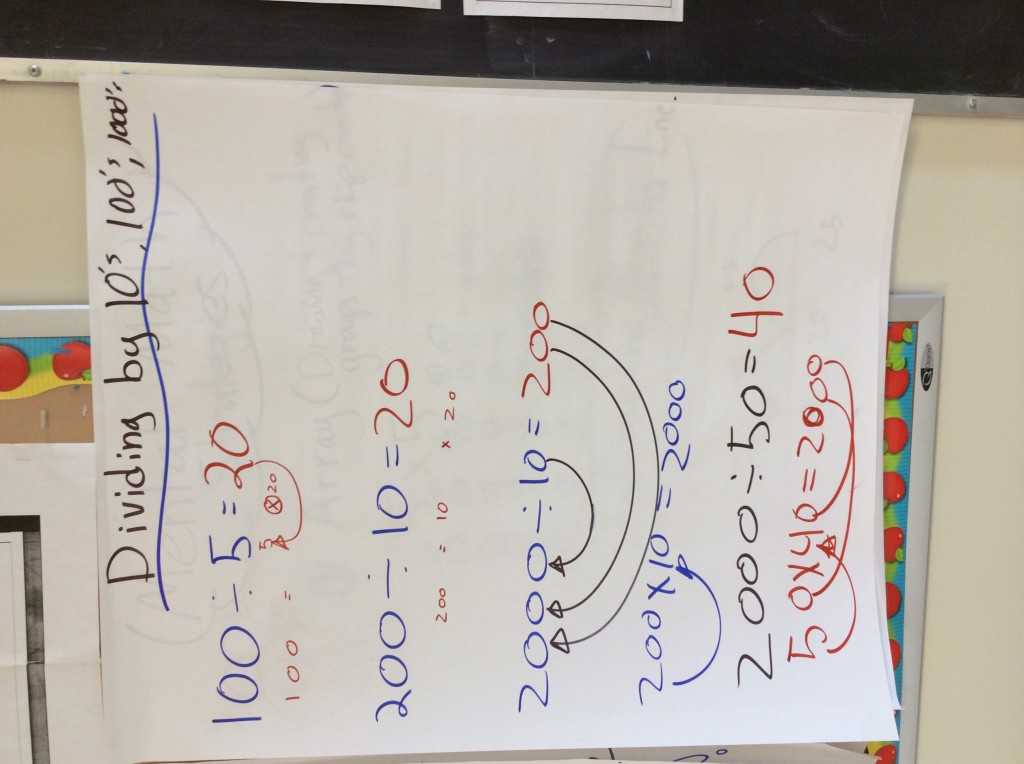 Dividing by 10's, 100's, 1000's
100 ÷ 5 = 20
100 = 5 x 20
200 ÷ 10 = 20
200 = 10 x 20
2000 ÷ 10 = 200
200 x 10 = 2000
2000 ÷ 50 = 40
50 x 40 = 2000